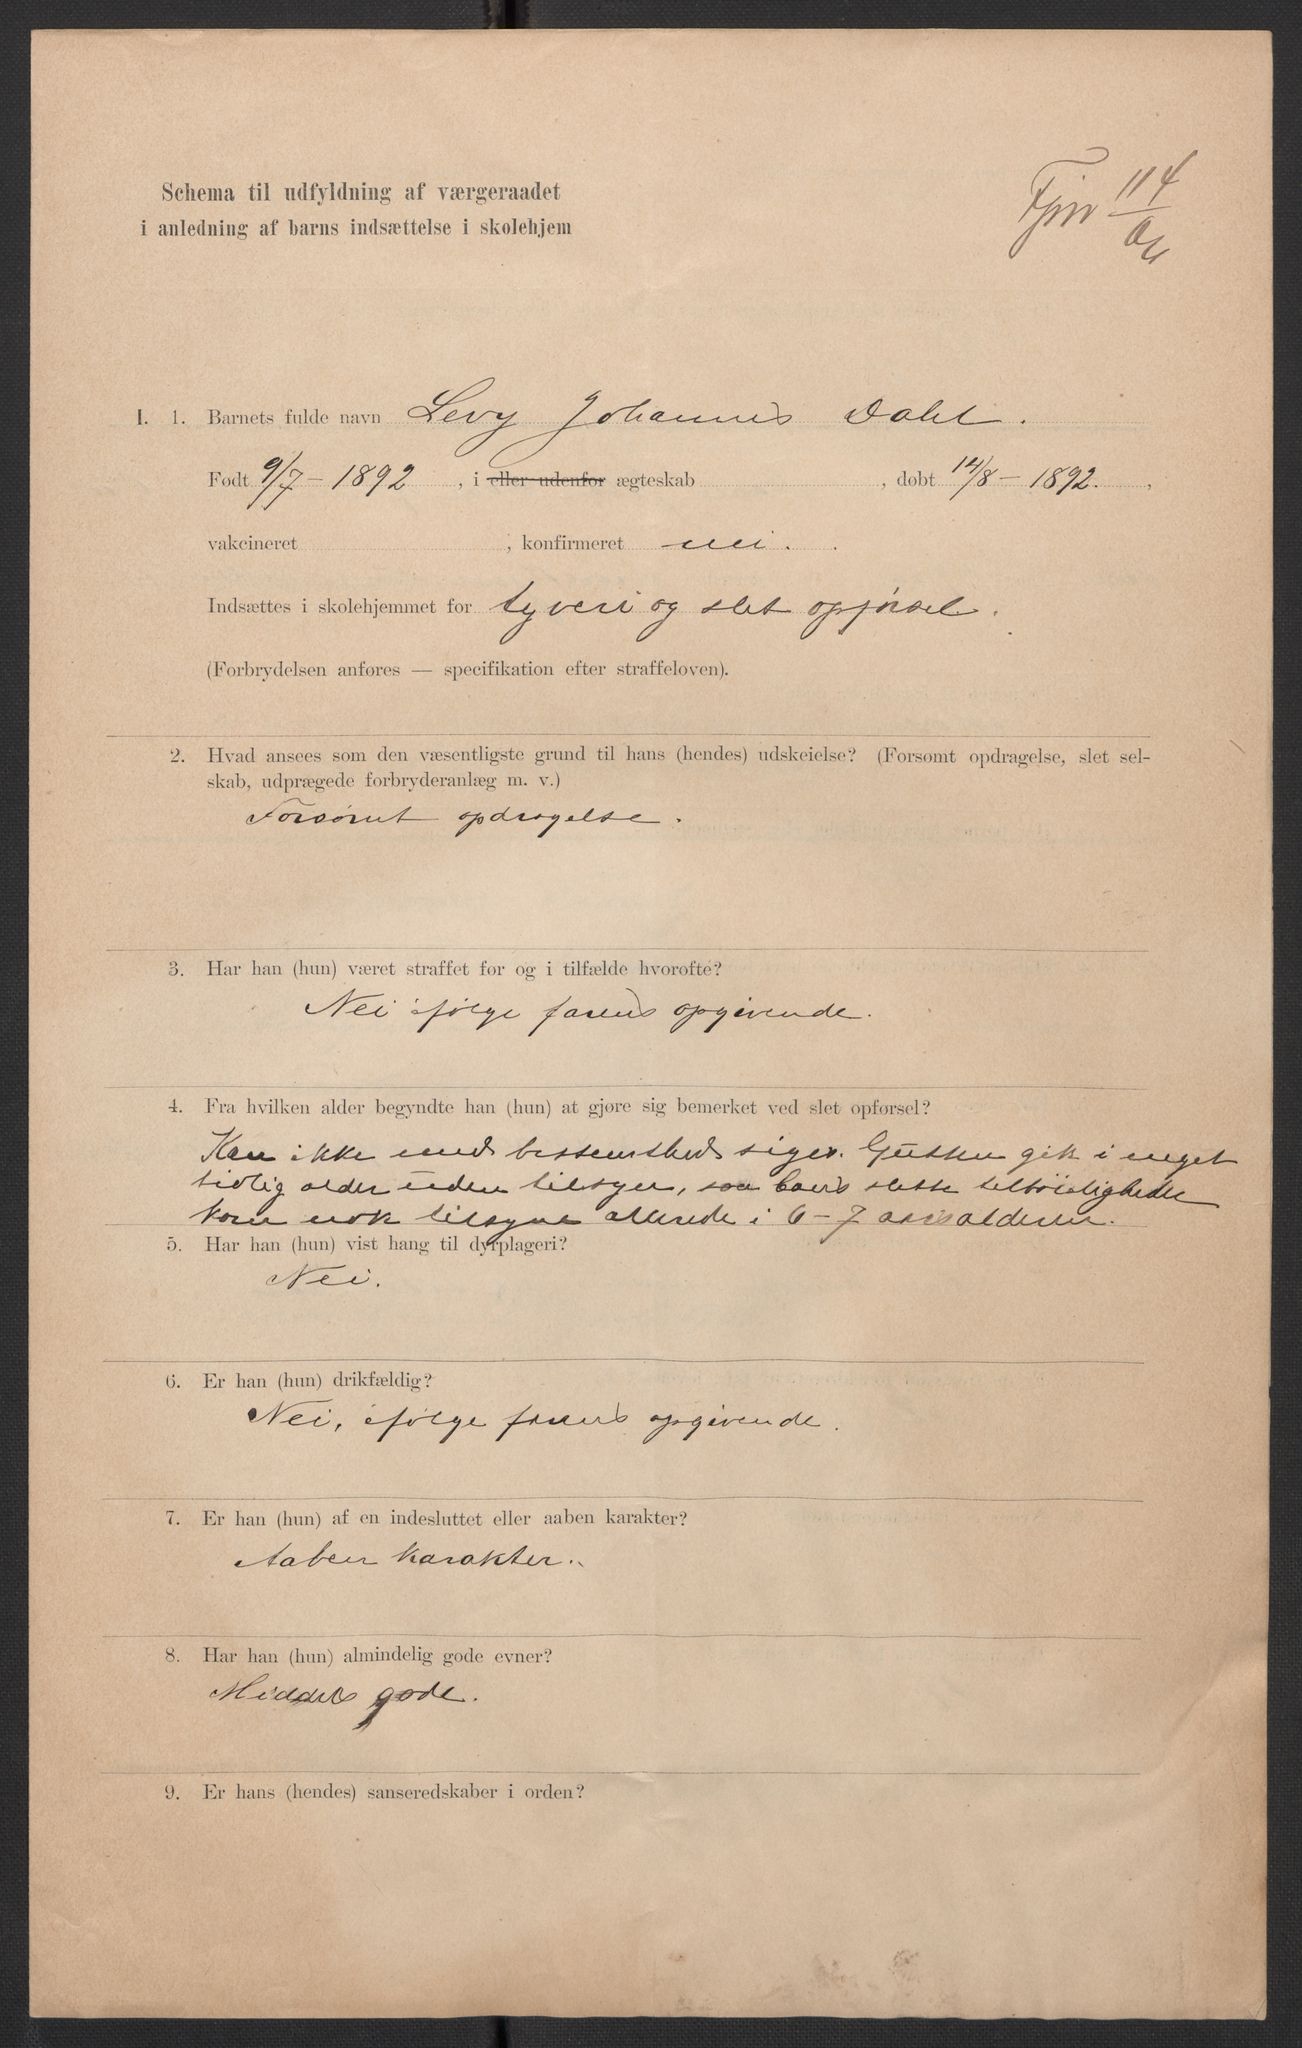 Schema til udfyldning af værgeraadet
i anledning af barns indsættelse i skolehjem
114
I. 1. Barnets fulde navn Levy Johannes Dahl.
Født 9/7 – 1892, i eller udenfor ægteskab , døbt 14/8 – 1892.,
vakcineret , konfirmeret nei.
Indsættes i skolehjemmet for tyveri og slet opførsel.
(Forbrydelsen anføres — specifikation efter straffeloven).
2. Hvad ansees som den væsentligste grund til hans (hendes) udskeielse? (Forsømt opdragelse, slet sel-
skab, udprægede forbryderanlæg m. v.)
Forsømt opdragelse.
3. Har han (hun) været straffet før og i tilfælde hvorofte?
Nei ifølge farens opgivende.
4. Fra hvilken alder begyndte han (hun) at gjøre sig bemerket ved slet opførsel?
Kan ikke med bestemthed siges. Gutten gik i meget
tidlig alder uden tilsyn, saa hans slette tilbøieligheder
kom nok tilsyne allerede i 6 – 7 aarsalderen.
5. Har han (hun) vist hang til dyrplageri?
Nei.
6. Er han (hun) drikfældig?
Nei, ifølge farens opgivende.
7. Er han (hun) af en indesluttet eller aaben karakter?
Aaben karakter.
8. Har han (hun) almindelig gode evner?
Middels gode.
9. Er hans (hendes) sanseredskaber i orden?